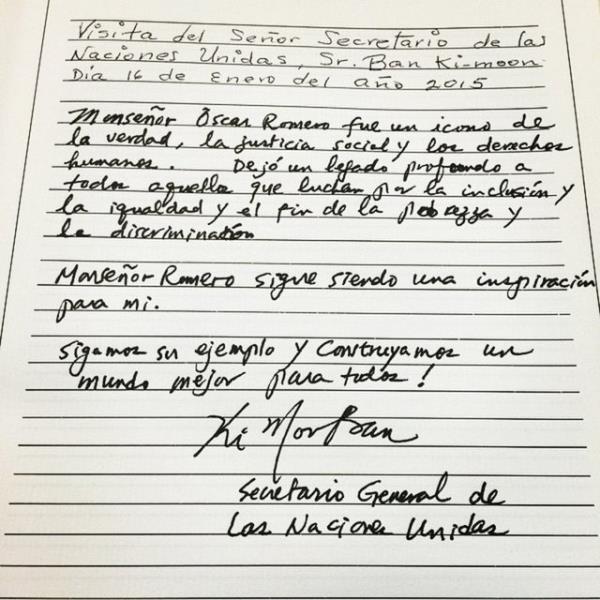 Visita del Señor Secretario de las
Naciones Unidas, Sr. Ban Ki-moon
Día 16 de Enero del año 2015
Monseñor Óscar Romero fue un icono de
la verdad, la justicia social y los derechos
humanos. Dejó un legado profundo a
todos aquellos que luchan por la inclusión y
la igualdad y el fin de la pobrezza y
la discriminación
Monseñor Romero sigue siendo una inspiración
para mi.
Sigamos su ejemplo y construyamos un
mundo mejor para todos!
Ki Moon Ban
Secretario General de
Las Naciones Unidas